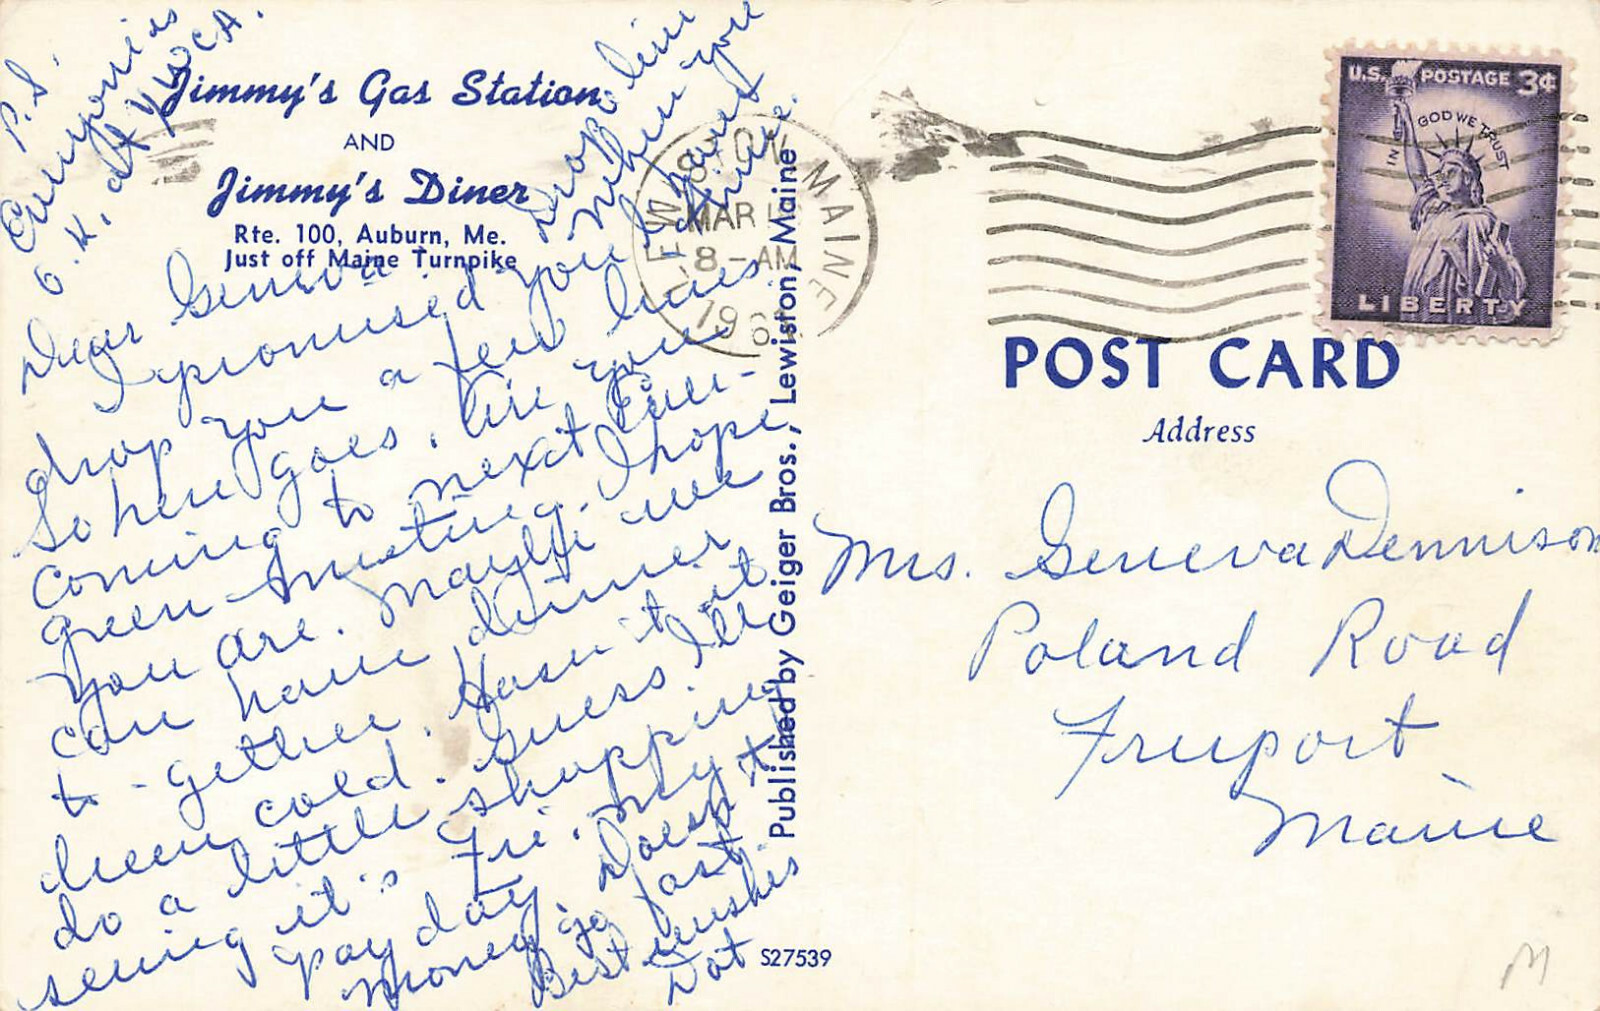 Jimmy's Gas Station
AND
Jimmy's Diner
Rte. 100, Auburn, Me.
Just off Maine Turnpike
Dear Geneva
I promised you I
drop you a few lines
So here goes. Are you
coming to next Ever-
green meeting. I hope
you are. Maybe we
can have dinner
to-gether. Hasn't it
been cold. Guess I'll
do a little shopping
seeing it's Fri. My
pay day. Doesn't
money go fast.
Best wishes
Dot
P.S.
Everyone is
O.K. at YWCA.
Drop a line
when you
have
time.
Published by Geiger Bros., Lewiston, Maine
S27539
LEWISTON MAINE
MAR
8-AM
196
U.S. POSTAGE 3¢
IN GOD WE TRUST
LIBERTY
POST CARD
Address
Mrs. Geneva Dennison
Poland Road
Freeport
Maine
M